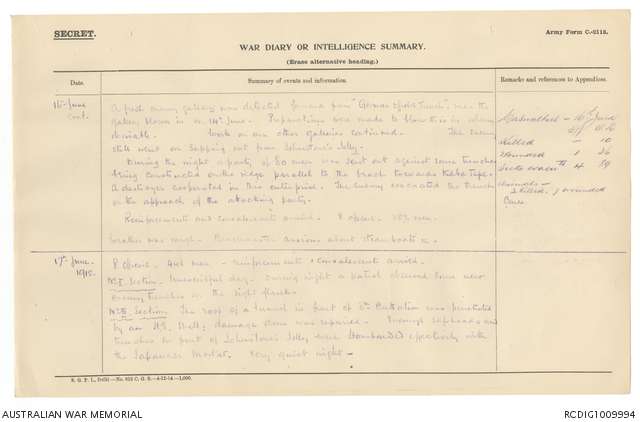 SECRET.
Army Form C.-2118.
WAR DIARY OR INTELLIGENCE SUMMARY.
(Erase alternative heading.)
Date.
Summary of events and information.
Remarks and references to Appendices.
16th June
cont.
A fresh enemy gallery was detected forward from "German Officers Trench" near the
gallery blown in on 14th June. Preparations was made to blow this in when
desirable. Work on our other galleries continued. The Enemy
still went on Sapping out from Johnston's Jolly.
During the night a party of 80 men was sent out against some trenches
being constructed on the ridge parallel to the beach towards Kaba Tepe.
A destroyer cooperated in this enterprise. The Enemy evacuated the trench
on the approach of the attacking party.
Reinforcements and convalescents arrived. 8 officers. 153 men.
Weather was rough. anxious about steamboats
Casualties - 16th June
Off O.R.
Killed - 10
Wounded 1 26
Sick evac'd 4 89
Animals -
2 killed. 7 wounded
17th June
1915.
8 officers 441 men - reinforcements & convalescent arrived.
No I Section. Uneventful day. During night a patrol observed some new
enemy trenches on the right flank.
No II Section. The roof of a tunnel in front of 8th Battalion was penetrated
by an H.E. Shell; damage done was repaired. Enemy's sapheads and
trenches in front of Johnston's Jolly were bombarded effectively with
the Japanese Mortar. Very quiet night -
S. G. P. I., Delhi—No. 825 C. G. S.—4-12-14—1,000.
AUSTRALIAN WAR MEMORIAL
RCDIG1009994